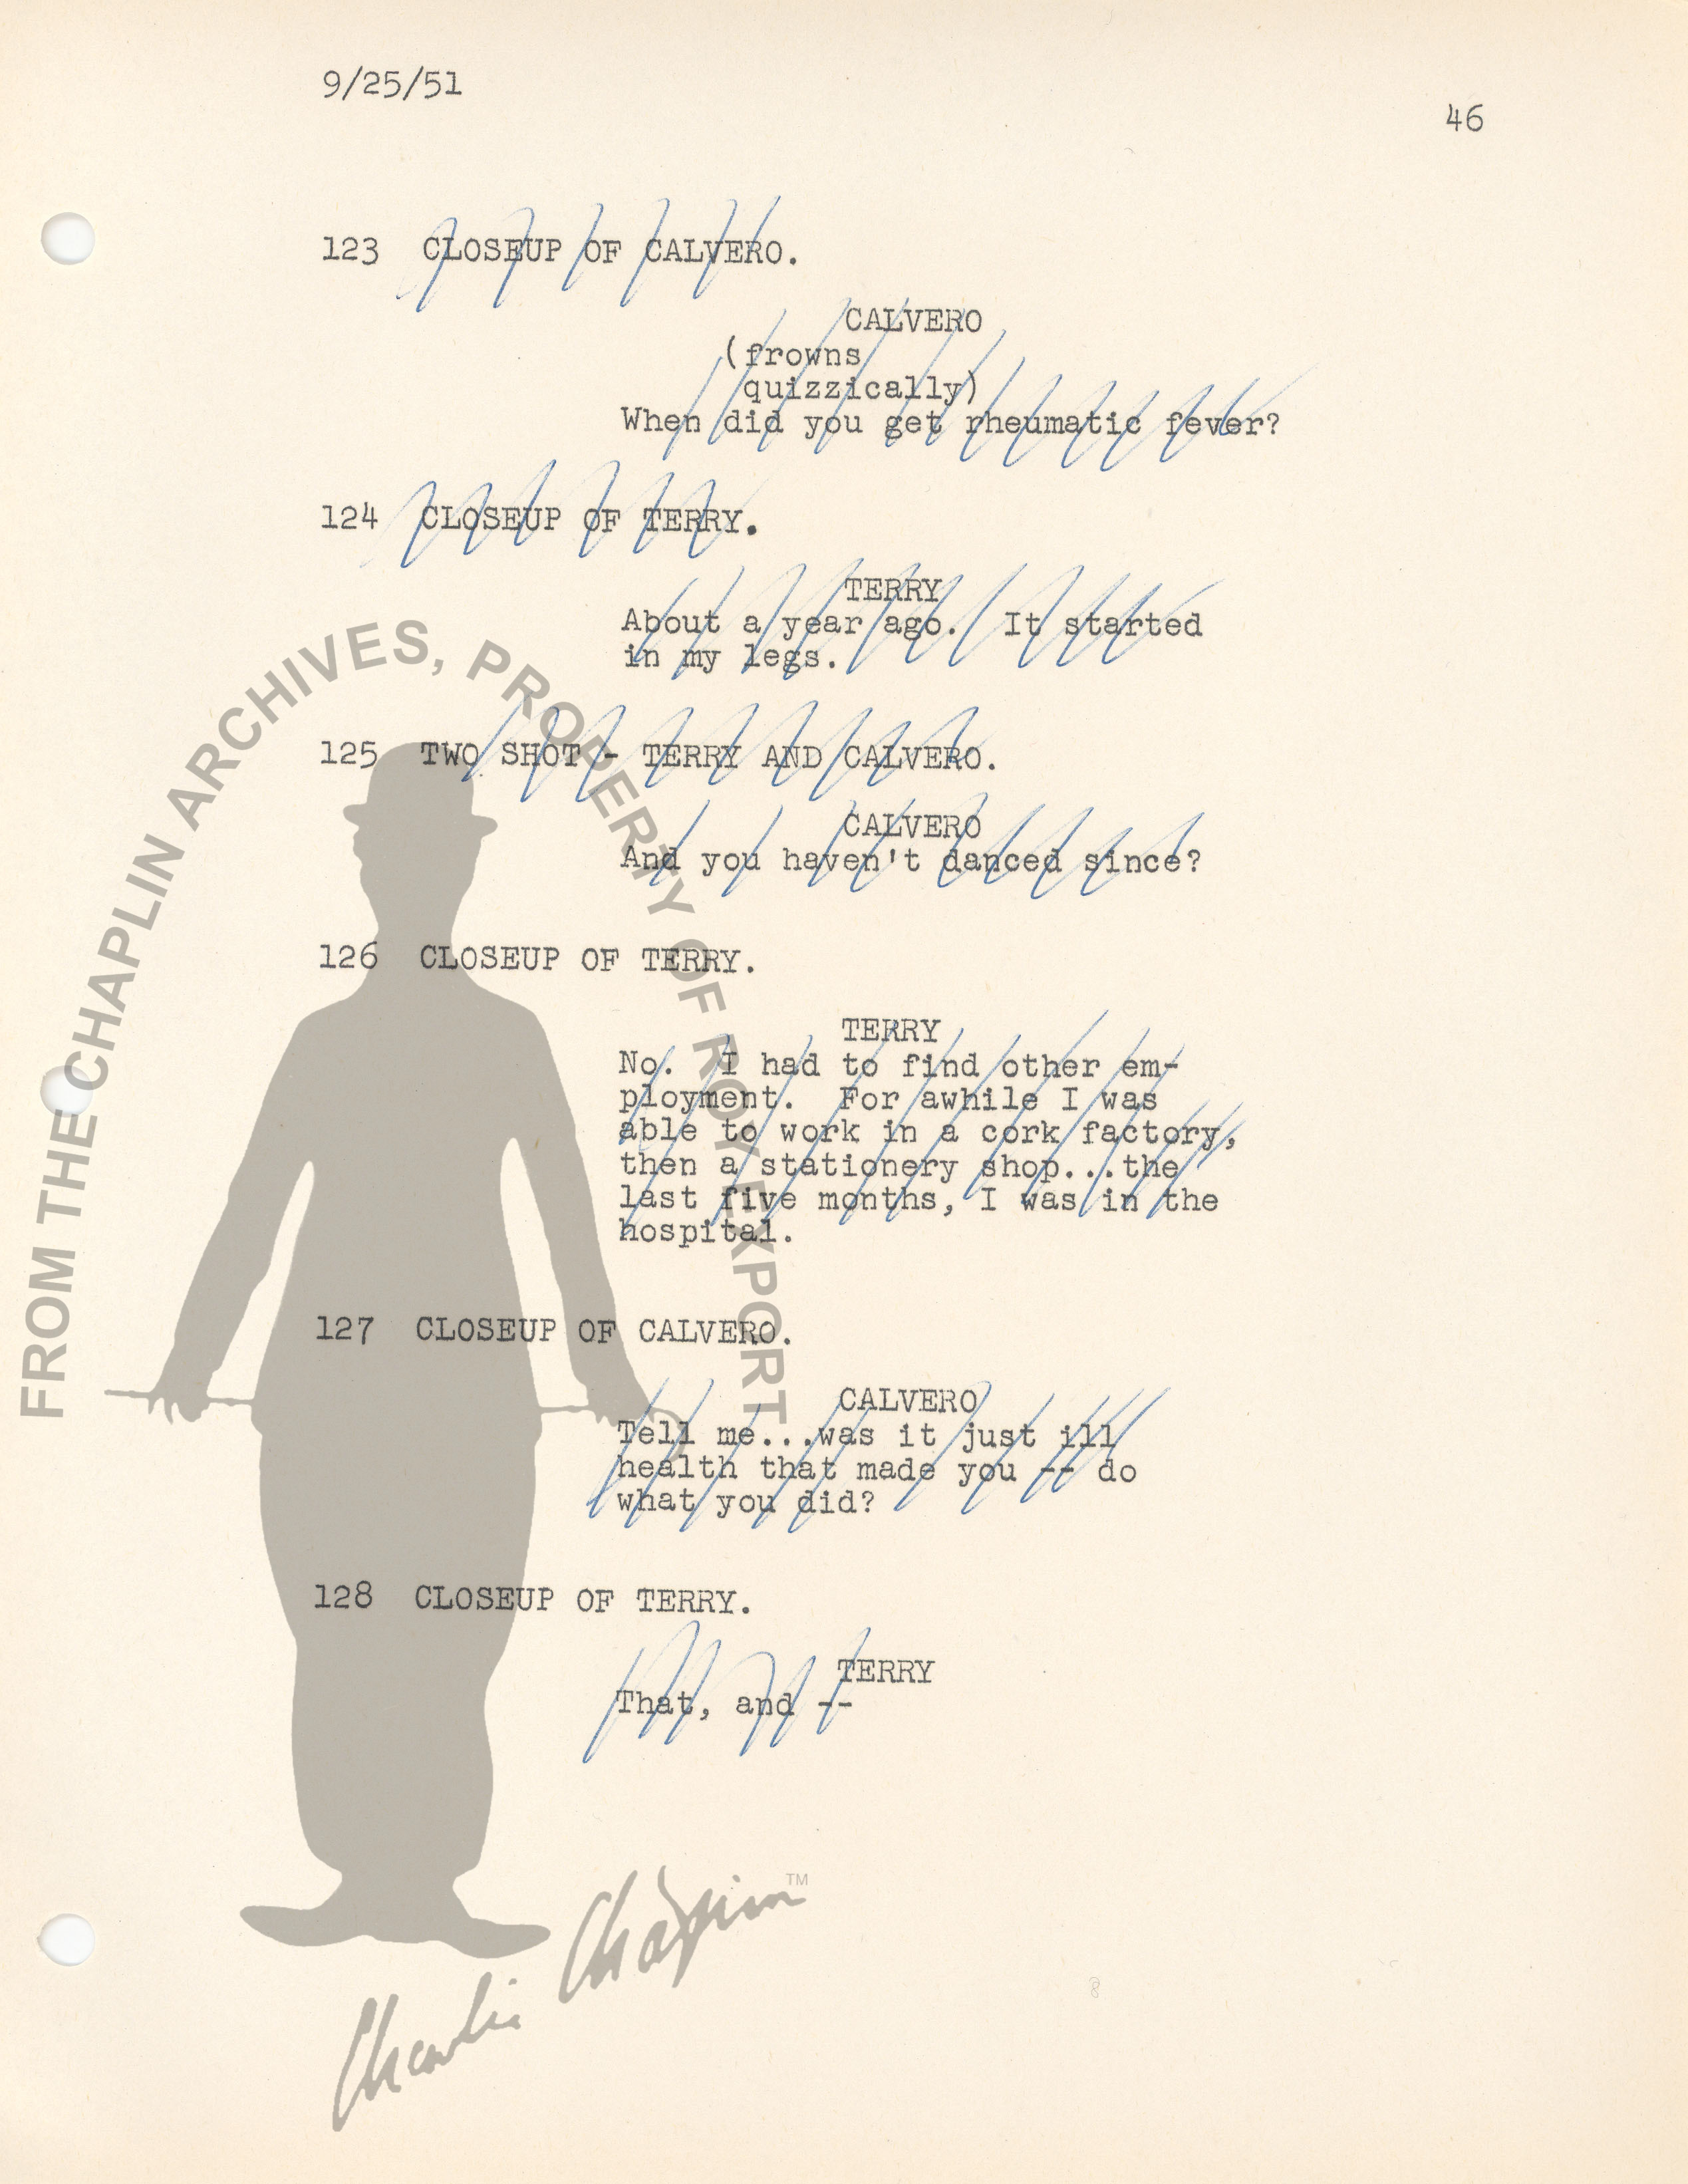 9/25/51
46
123 CLOSEUP OF CALVERO.
CALVERO
(frowns
quizzically)
When did you get rheumatic fever?
124 CLOSEUP OF TERRY.
TERRY
About a year ago. It started
in my legs.
125 TWO SHOT - TERRY AND CALVERO.
CALVERO
And you haven't danced since?
126 CLOSEUP OF TERRY.
TERRY
No. I had to find other em-
ployment. For awhile I was
able to work in a cork factory,
then a stationery shop...the
last five months, I was in the
hospital.
127 CLOSEUP OF CALVERO.
CALVERO
Tell me...was it just ill
health that made you -- do
what you did?
128 CLOSEUP OF TERRY.
TERRY
That, and --
FROM THE CHAPLIN ARCHIVES, PROPERTY OF ROY EXPORT
Charlie Chaplin TM
8